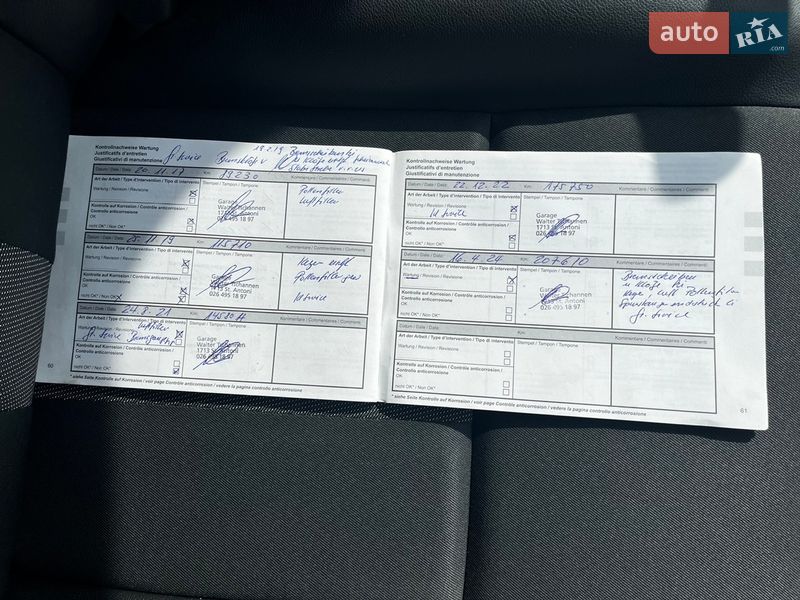 auto RIA.com
Kontrollnachweise Wartung
Justificatifs d'entretien
Giustificativi di manutenzione
Datum / Date / Data: 20.11.17 Km: 19230 Kommentare / Commentaires / Commenti
Art der Arbeit / Type d'intervention / Tipo di intervento Stempel / Tampon / Tampone:
Wartung / Revision / Revisione Pollenfilter
Luftfilter
Kontrolle auf Korrosion / Contrôle anticorrosion /
Controllo anticorrosione
OK
nicht OK* / Non OK*
Garage
Walter Tschannen
1713 St. Antoni
026 495 18 97
Datum / Date / Data: 25.11.19 Km: 115710 Kommentare / Commentaires / Commenti
Art der Arbeit / Type d'intervention / Tipo di intervento Stempel / Tampon / Tampone:
Wartung / Revision / Revisione
Pollenfilter
Kontrolle auf Korrosion / Contrôle anticorrosion /
Controllo anticorrosione
OK
nicht OK* / Non OK*
Garage
Walter Tschannen
1713 St. Antoni
026 495 18 97
Datum / Date / Data: 24.8.21 Km: Kommentare / Commentaires / Commenti
Art der Arbeit / Type d'intervention / Tipo di intervento Stempel / Tampon / Tampone:
Wartung / Revision / Revisione Luftfilter
Kontrolle auf Korrosion / Contrôle anticorrosion /
Controllo anticorrosione
OK
nicht OK* / Non OK*
Garage
Walter Tschannen
1713 St. Antoni
* siehe Seite Kontrolle auf Korrosion / voir page Contrôle anticorrosion / vedere la pagina controllo anticorrosione
60
Kontrollnachweise Wartung
Justificatifs d'entretien
Giustificativi di manutenzione
Datum / Date / Data: 22.12.22 Km: 175750 Kommentare / Commentaires / Commenti
Art der Arbeit / Type d'intervention / Tipo di intervento Stempel / Tampon / Tampone:
Wartung / Revision / Revisione
Kontrolle auf Korrosion / Contrôle anticorrosion /
Controllo anticorrosione
OK
nicht OK* / Non OK*
Garage
Walter Tschannen
1713 St. Antoni
026 495 18 97
Datum / Date / Data: 16.4.24 Km: 207610 Kommentare / Commentaires / Commenti
Art der Arbeit / Type d'intervention / Tipo di intervento Stempel / Tampon / Tampone:
Wartung / Revision / Revisione
Kontrolle auf Korrosion / Contrôle anticorrosion /
Controllo anticorrosione
OK
nicht OK* / Non OK*
Garage
Walter Tschannen
1713 St. Antoni
026 495 18 97
Datum / Date / Data: Km: Kommentare / Commentaires / Commenti
Art der Arbeit / Type d'intervention / Tipo di intervento Stempel / Tampon / Tampone:
Wartung / Revision / Revisione
Kontrolle auf Korrosion / Contrôle anticorrosion /
Controllo anticorrosione
OK
nicht OK* / Non OK*
* siehe Seite Kontrolle auf Korrosion / voir page Contrôle anticorrosion / vedere la pagina controllo anticorrosione
61